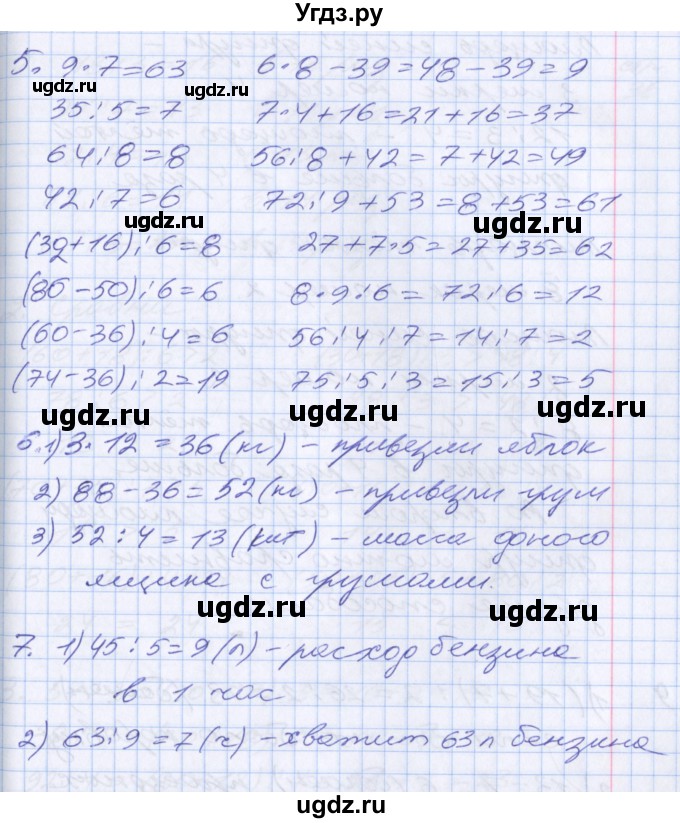 Угдз.ру
5. 9·7=63 6·8-39=48-39=9
35:5=7 7·4+16=21+16=37
64:8=8 56:8+42=7+42=49
42:7=6 72:9+53=8+53=61
(32+16):6=8 27+7·5=27+35=62
(86-50):6=6 8·9:6=72:6=12
(60-36):4=6 56:4:7=14:7=2
(74-36):2=19 75:5:3=15:3=5
6.1) 3·12=36 (кг) - привезли яблок
2) 88-36=52 (кг) - привезли груш
3) 52:4=13 (кг) - масса одного
ящика с грушами.
7. 1) 45:5=9 (л) - расход бензина
в 1 час
2) 63:9=7 (ч) - хватит 63 л бензина
ugdz.ru
ugdz.ru
ugdz.ru
ugdz.ru
ugdz.ru
ugdz.ru
ugdz.ru
ugdz.ru
ugdz.ru
ugdz.ru
ugdz.ru
ugdz.ru
ugdz.ru